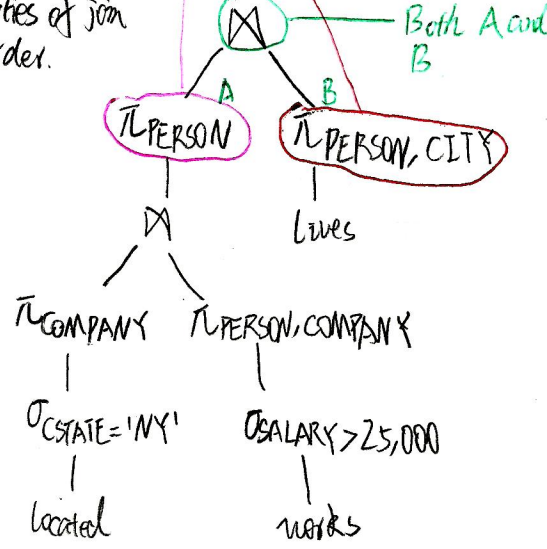 ties of join
der.
⋈
Both A and
B
A
B
π PERSON
π PERSON, CITY
⋈
Lives
π COMPANY
π PERSON, COMPANY
σ CSTATE = 'NY'
σ SALARY > 25,000
located
works